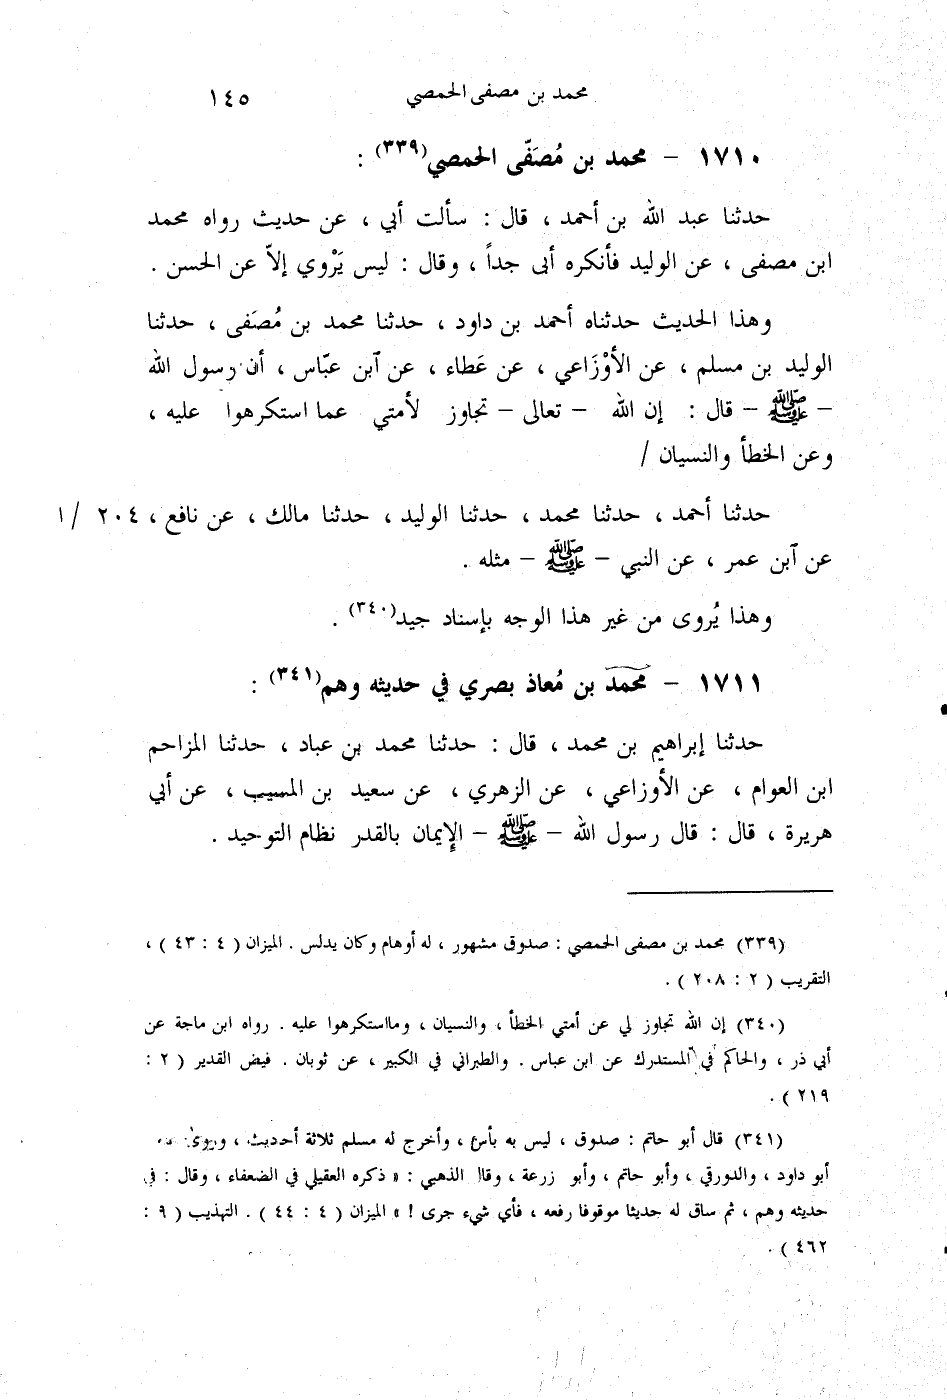 محمد بن مصفى الحمصي ١٤٥
١٧١٠ – محمد بن مُصَفّى الحمصي(٣٣٩) :
حدثنا عبد الله بن أحمد ، قال : سألت أبي ، عن حديث رواه محمد
ابن مصفى ، عن الوليد فأنكره أبى جداً ، وقال : ليس يَرْوي إلاّ عن الحسن .
وهذا الحديث حدثناه أحمد بن داود ، حدثنا محمد بن مُصَفى ، حدثنا
الوليد بن مسلم ، عن الأوْزَاعي ، عن عَطاء ، عن آبن عبّاس ، أن رسول الله
– ﷺ – قال : إن الله – تعالى – تجاوز لأمتي عما استكرهوا عليه ،
وعن الخطأ والنسيان /
حدثنا أحمد ، حدثنا محمد ، حدثنا الوليد ، حدثنا مالك ، عن نافع ، ٢٠٤ / ١
عن آبن عمر ، عن النبي – ﷺ – مثله .
وهذا يُروى من غير هذا الوجه بإسناد جيد(٣٤٠) .
١٧١١ – محمد بن مُعاذ بصري في حديثه وهم(٣٤١) :
حدثنا إبراهيم بن محمد ، قال : حدثنا محمد بن عباد ، حدثنا المزاحم
ابن العوام ، عن الأوزاعي ، عن الزهري ، عن سعيد بن المسيب ، عن أبي
هريرة ، قال : قال رسول الله – ﷺ – الإيمان بالقدر نظام التوحيد .
(٣٣٩) محمد بن مصفى الحمصي : صدوق مشهور ، له أوهام وكان يدلس . الميزان ( ٤ : ٤٣ ) ،
التقريب ( ٢ : ٢٠٨ ) .
(٣٤٠) إن الله تجاوز لي عن أمتي الخطأ ، والنسيان ، ومااستكرهوا عليه . رواه ابن ماجة عن
أبي ذر ، والحاكم في المستدرك عن ابن عباس . والطبراني في الكبير ، عن ثوبان . فيض القدير ( ٢ :
٢١٩ ) .
(٣٤١) قال أبو حاتم : صدوق ، ليس به بأس ، وأخرج له مسلم ثلاثة أحديث ، وروى عنه
أبو داود ، والدورقي ، وأبو حاتم ، وأبو زرعة ، وقال الذهبي : « ذكره العقيلي في الضعفاء ، وقال : في
حديثه وهم ، ثم ساق له حديثا موقوفا رفعه ، فأي شيء جرى ! » الميزان ( ٤ : ٤٤ ) . التهذيب ( ٩ :
٤٦٢ ) .